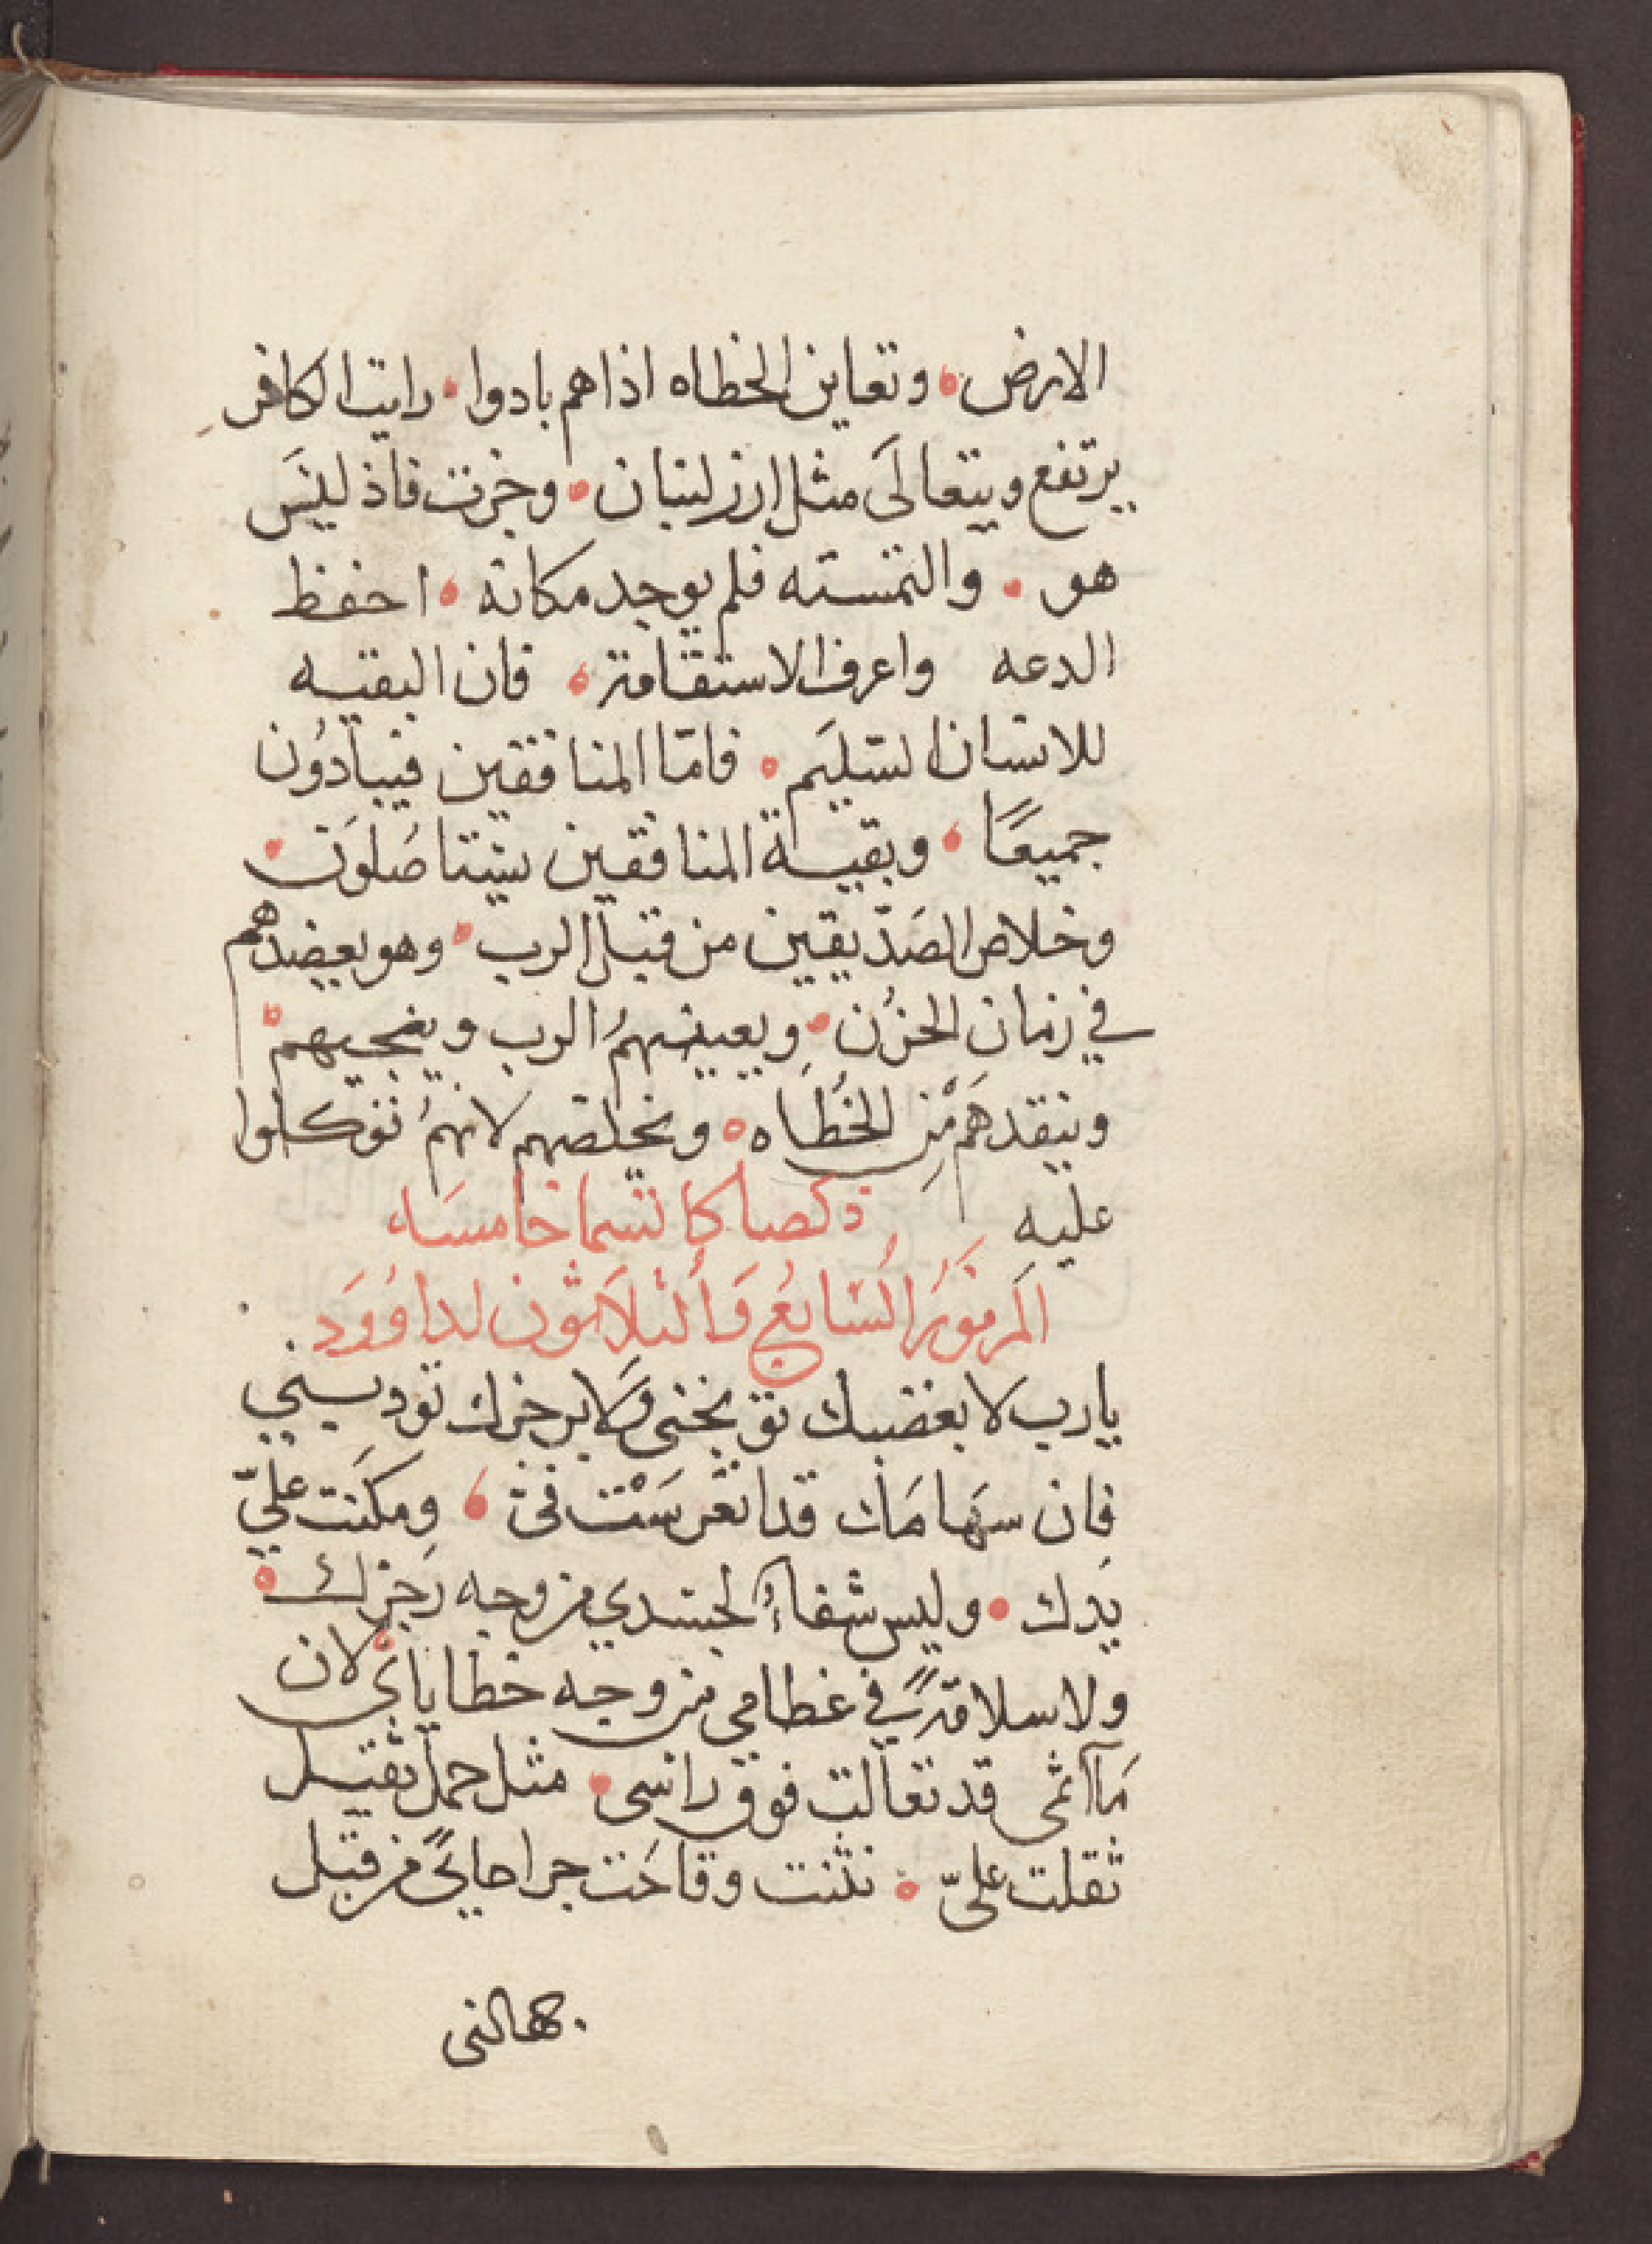 الارض • وتعاين الخطاه اذا هم بادوا • رايت الكافر
يرتفع ويتعالَى مثل ارز لبنان • وجزت فاذ ليَس
هو • والتمسته فلم يوجد مكانه • احفظ
الدعه واعرف الاستقامة • فان البقيه
للانسان السَليَم • فامّا المنافقين فيبادُون
جميعًا • وبقيــة المنافقين يستاصَلوَن •
وخلاص الصَدّيقين من قبل الرب • وهو يعضدهم
في زمان الحزُن • ويعينهمُ الرب وينجيهم •
وينقدهم مْن الخُطَاه • ويخلصهم لانهمُ توكلوا
عليه ذكصا كاتسما خامسَه
المَزموَرُ السَّابعُ وَالثلاثون لداوُوَد
يارب لا بغضبك توبخنى وَلا برجزك تودبني
فان سهَامَك قد انغرسَتْ فىّ • ومكَنت عليّ
يدَك • وليس شفاءُ لجسدي من وجه رَجزك •
ولا سلامةً في عظامى من وجه خطاياىْ • لان
مَآاثمى قد تعالت فوق راسى • مثل حمل ثقيل
ثقلت علىّ • نثنت وقاحَت جراحاتىً من قبل
جهالتى